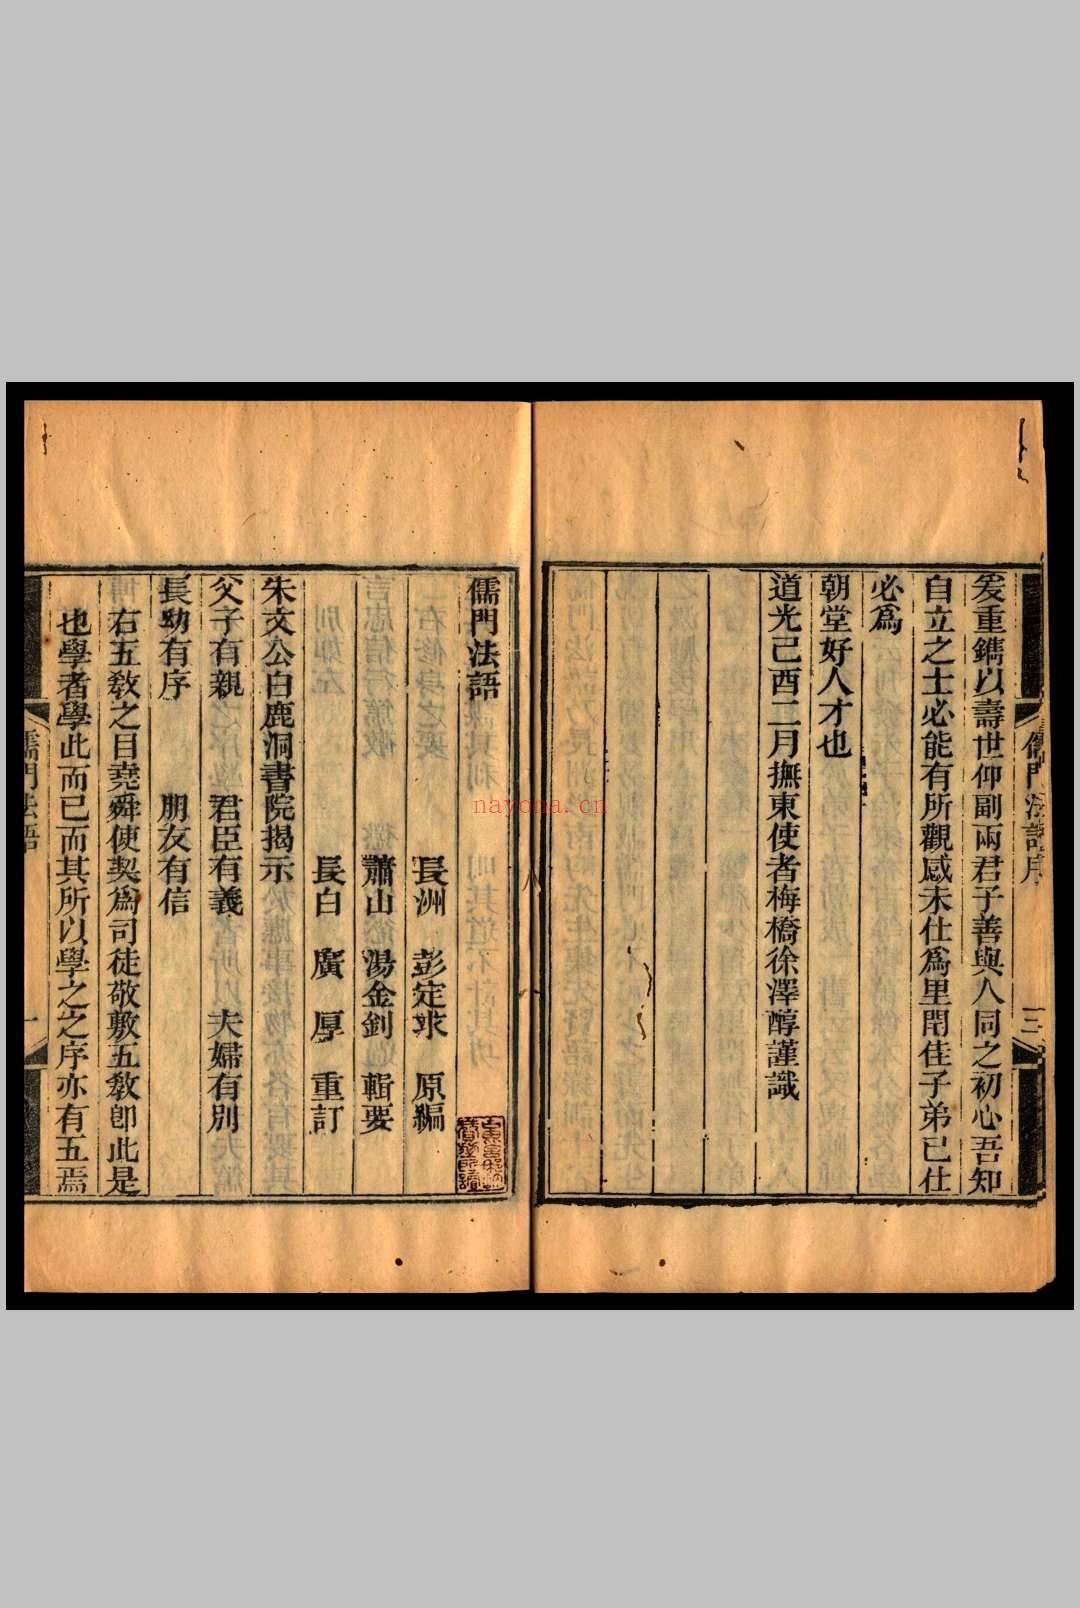 爰重鐫以壽世仰副兩君子善與人同之初心吾知
自立之士必能有所觀感未仕爲里閈佳子弟已仕
必爲
朝堂好人才也
道光己酉二月撫東使者梅橋徐澤醇謹識
儒門法語序
三
儒門法語
長洲 彭定求 原編
蕭山 湯金釗 輯要
長白 廣厚 重訂
朱文公白鹿洞書院揭示
父子有親 君臣有義 夫婦有別
長幼有序 朋友有信
右五敎之目堯舜使契爲司徒敬敷五敎卽此是
也學者學此而已而其所以學之之序亦有五焉
儒門法語
一
nayona.cn